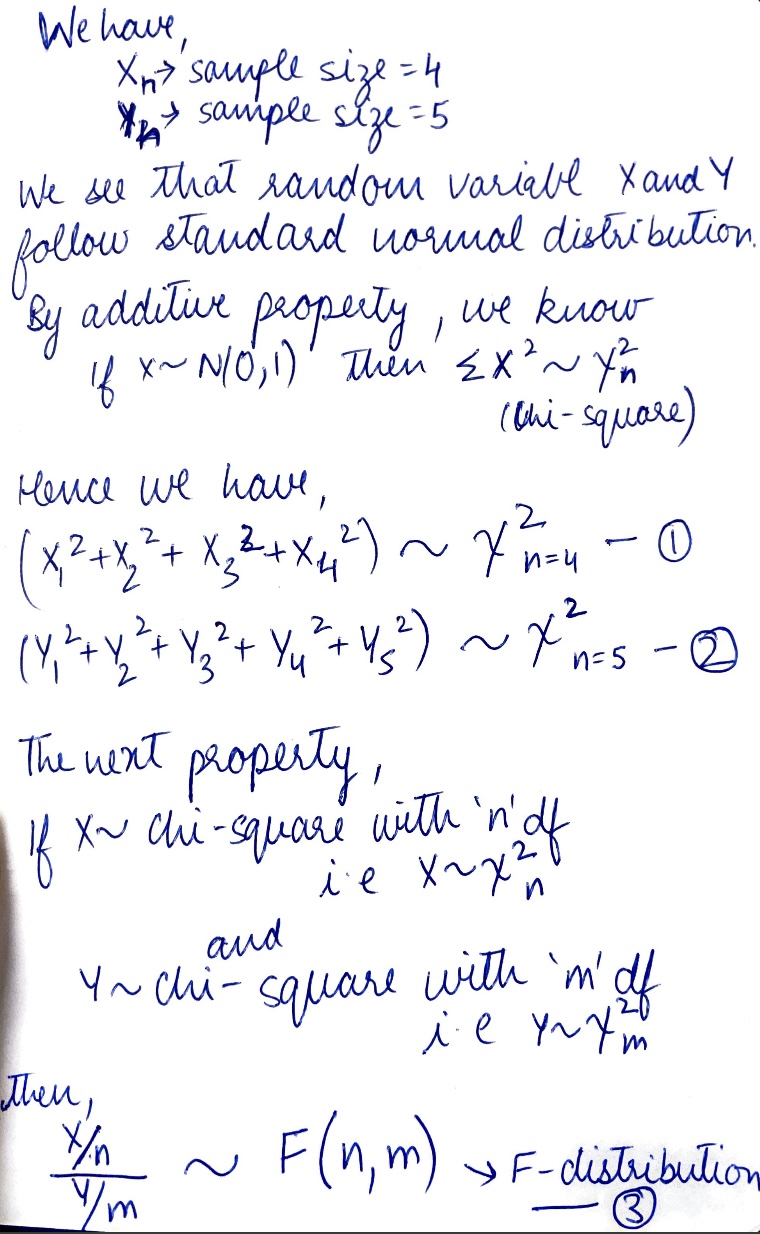 We have,
Xₙ → sample size = 4
Yₙ → sample size = 5
We see that random variabl X and Y
follow standard normal distribution.
By additive property, we know
If X ~ N(0,1) then ΣX² ~ χ²ₙ
(chi-square)
Hence we have,
(X₁² + X₂² + X₃² + X₄²) ~ χ²ₙ₌₄ — ①
(Y₁² + Y₂² + Y₃² + Y₄² + Y₅²) ~ χ²ₙ₌₅ — ②
The next property,
If X ~ chi-square with 'n' df
i.e X ~ χ²ₙ
and
Y ~ chi-square with 'm' df
i.e Y ~ χ²ₘ
then,
X/n
Y/m ~ F(n,m) → F-distribution
— ③